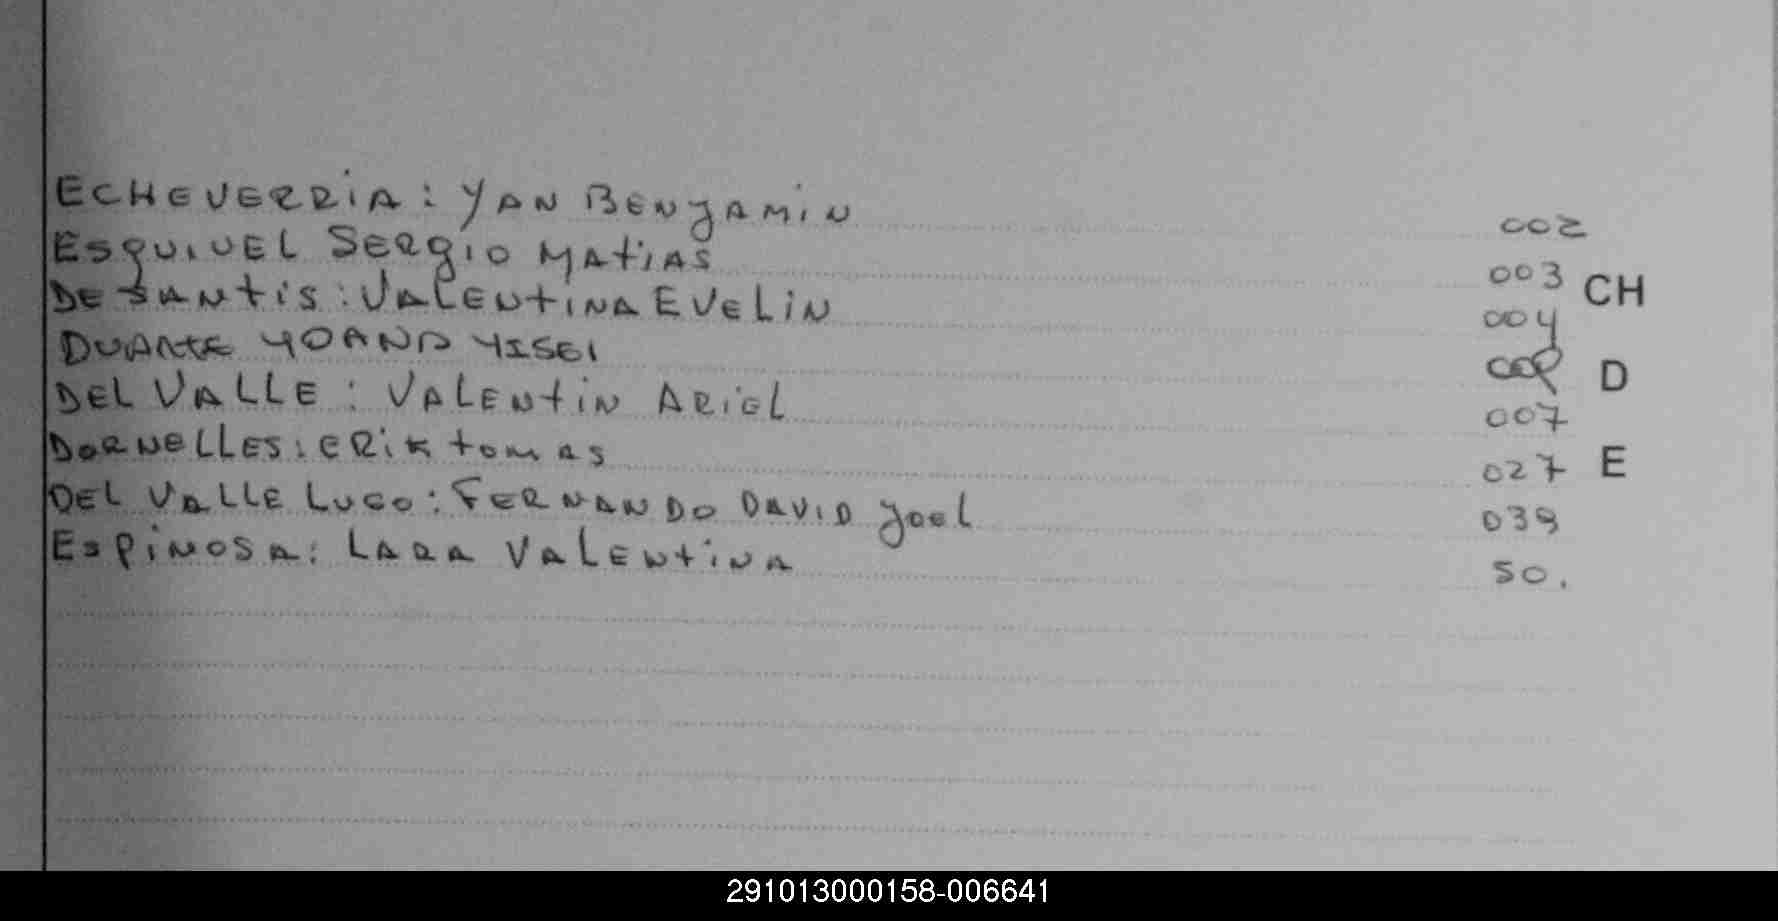 ECHEVERRIA: YAN BENYAMIN 002
ESQUIVEL SERGIO MATIAS 003 CH
DE SANTIS: VALENTINA EVELIN 004
DUARTE YOANA YISEL D
DEL VALLE: VALENTIN ARIEL 007
DORNELLES: ERIK TOMAS 027 E
DEL VALLE LUGO: FERNANDO DAVID JOEL 039
ESPINOSA: LARA VALENTINA 50.
291013000158-006641